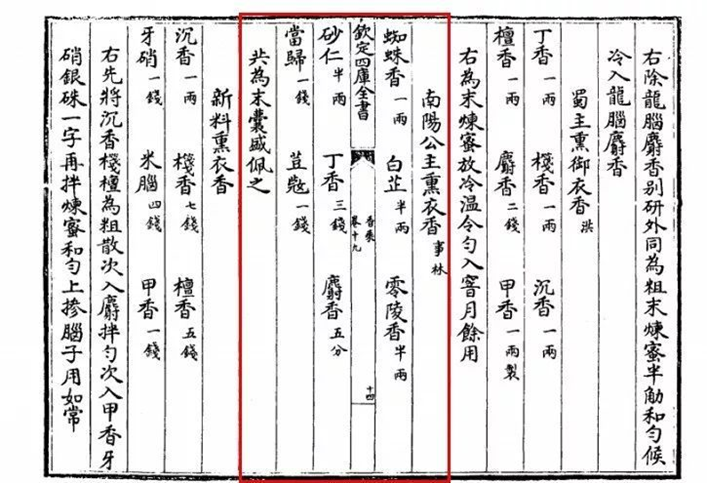 右除龍腦麝香别研外同為粗末煉蜜半觔和勻候
冷入龍腦麝香
蜀主熏御衣香 洪
丁香一兩 棧香一兩 沉香一兩
檀香一兩 麝香二錢 甲香一兩製
右為末煉蜜放冷温令勻入窨月餘用
南陽公主熏衣香 事林
蜘蛛香一兩 白芷半兩 零陵香半兩
欽定四庫全書 香乗 卷十九 十四
砂仁半兩 丁香三錢 麝香五分
當歸一錢 荳蔻一錢
共為末囊盛佩之
新料熏衣香
沉香一兩 棧香七錢 檀香五錢
牙硝一錢 米腦四錢 甲香一錢
右先將沉香棧檀為粗散次入麝拌勻次入甲香牙
硝銀硃一字再拌煉蜜和勻上摻腦子用如常